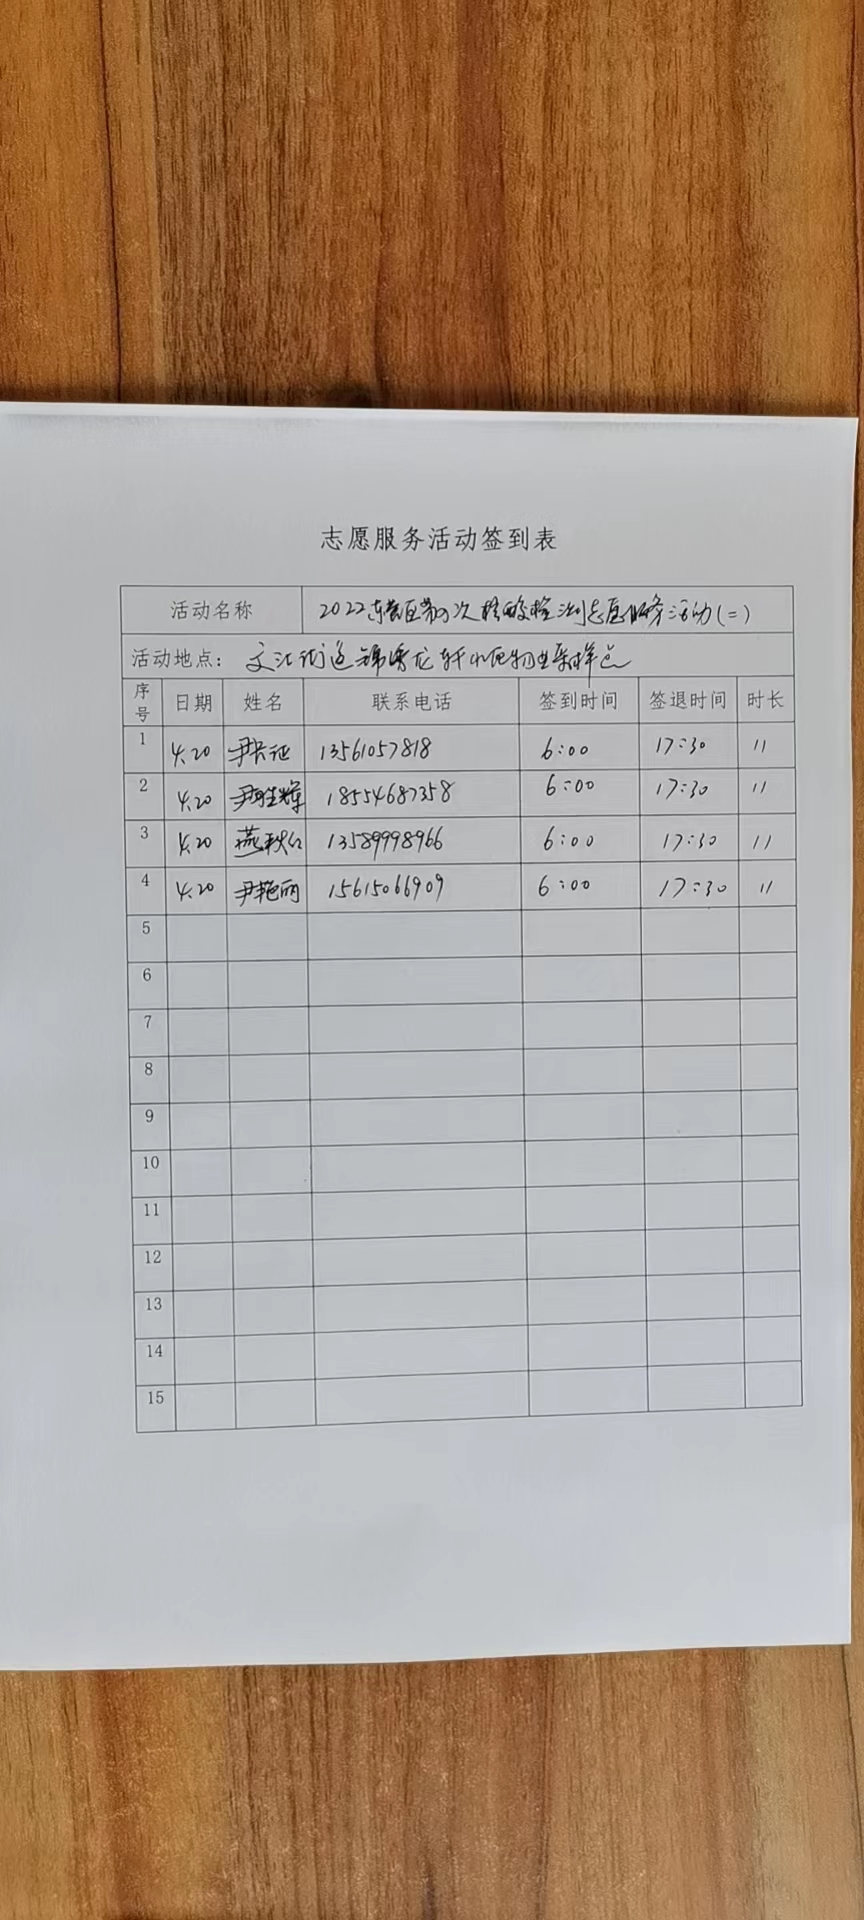 志愿服务活动签到表
活动名称 2022东营区第 次核酸检测志愿服务活动(二)
活动地点: 文汇街道锦绣龙轩小区物业采样点
序号 日期 姓名 联系电话 签到时间 签退时间 时长
1 4.20 尹长征 13561057818 6:00 17:30 11
2 4.20 尹 辉 18554687358 6:00 17:30 11
3 4.20 燕秋红 13589998966 6:00 17:30 11
4 4.20 尹艳丽 15615066909 6:00 17:30 11
5
6
7
8
9
10
11
12
13
14
15